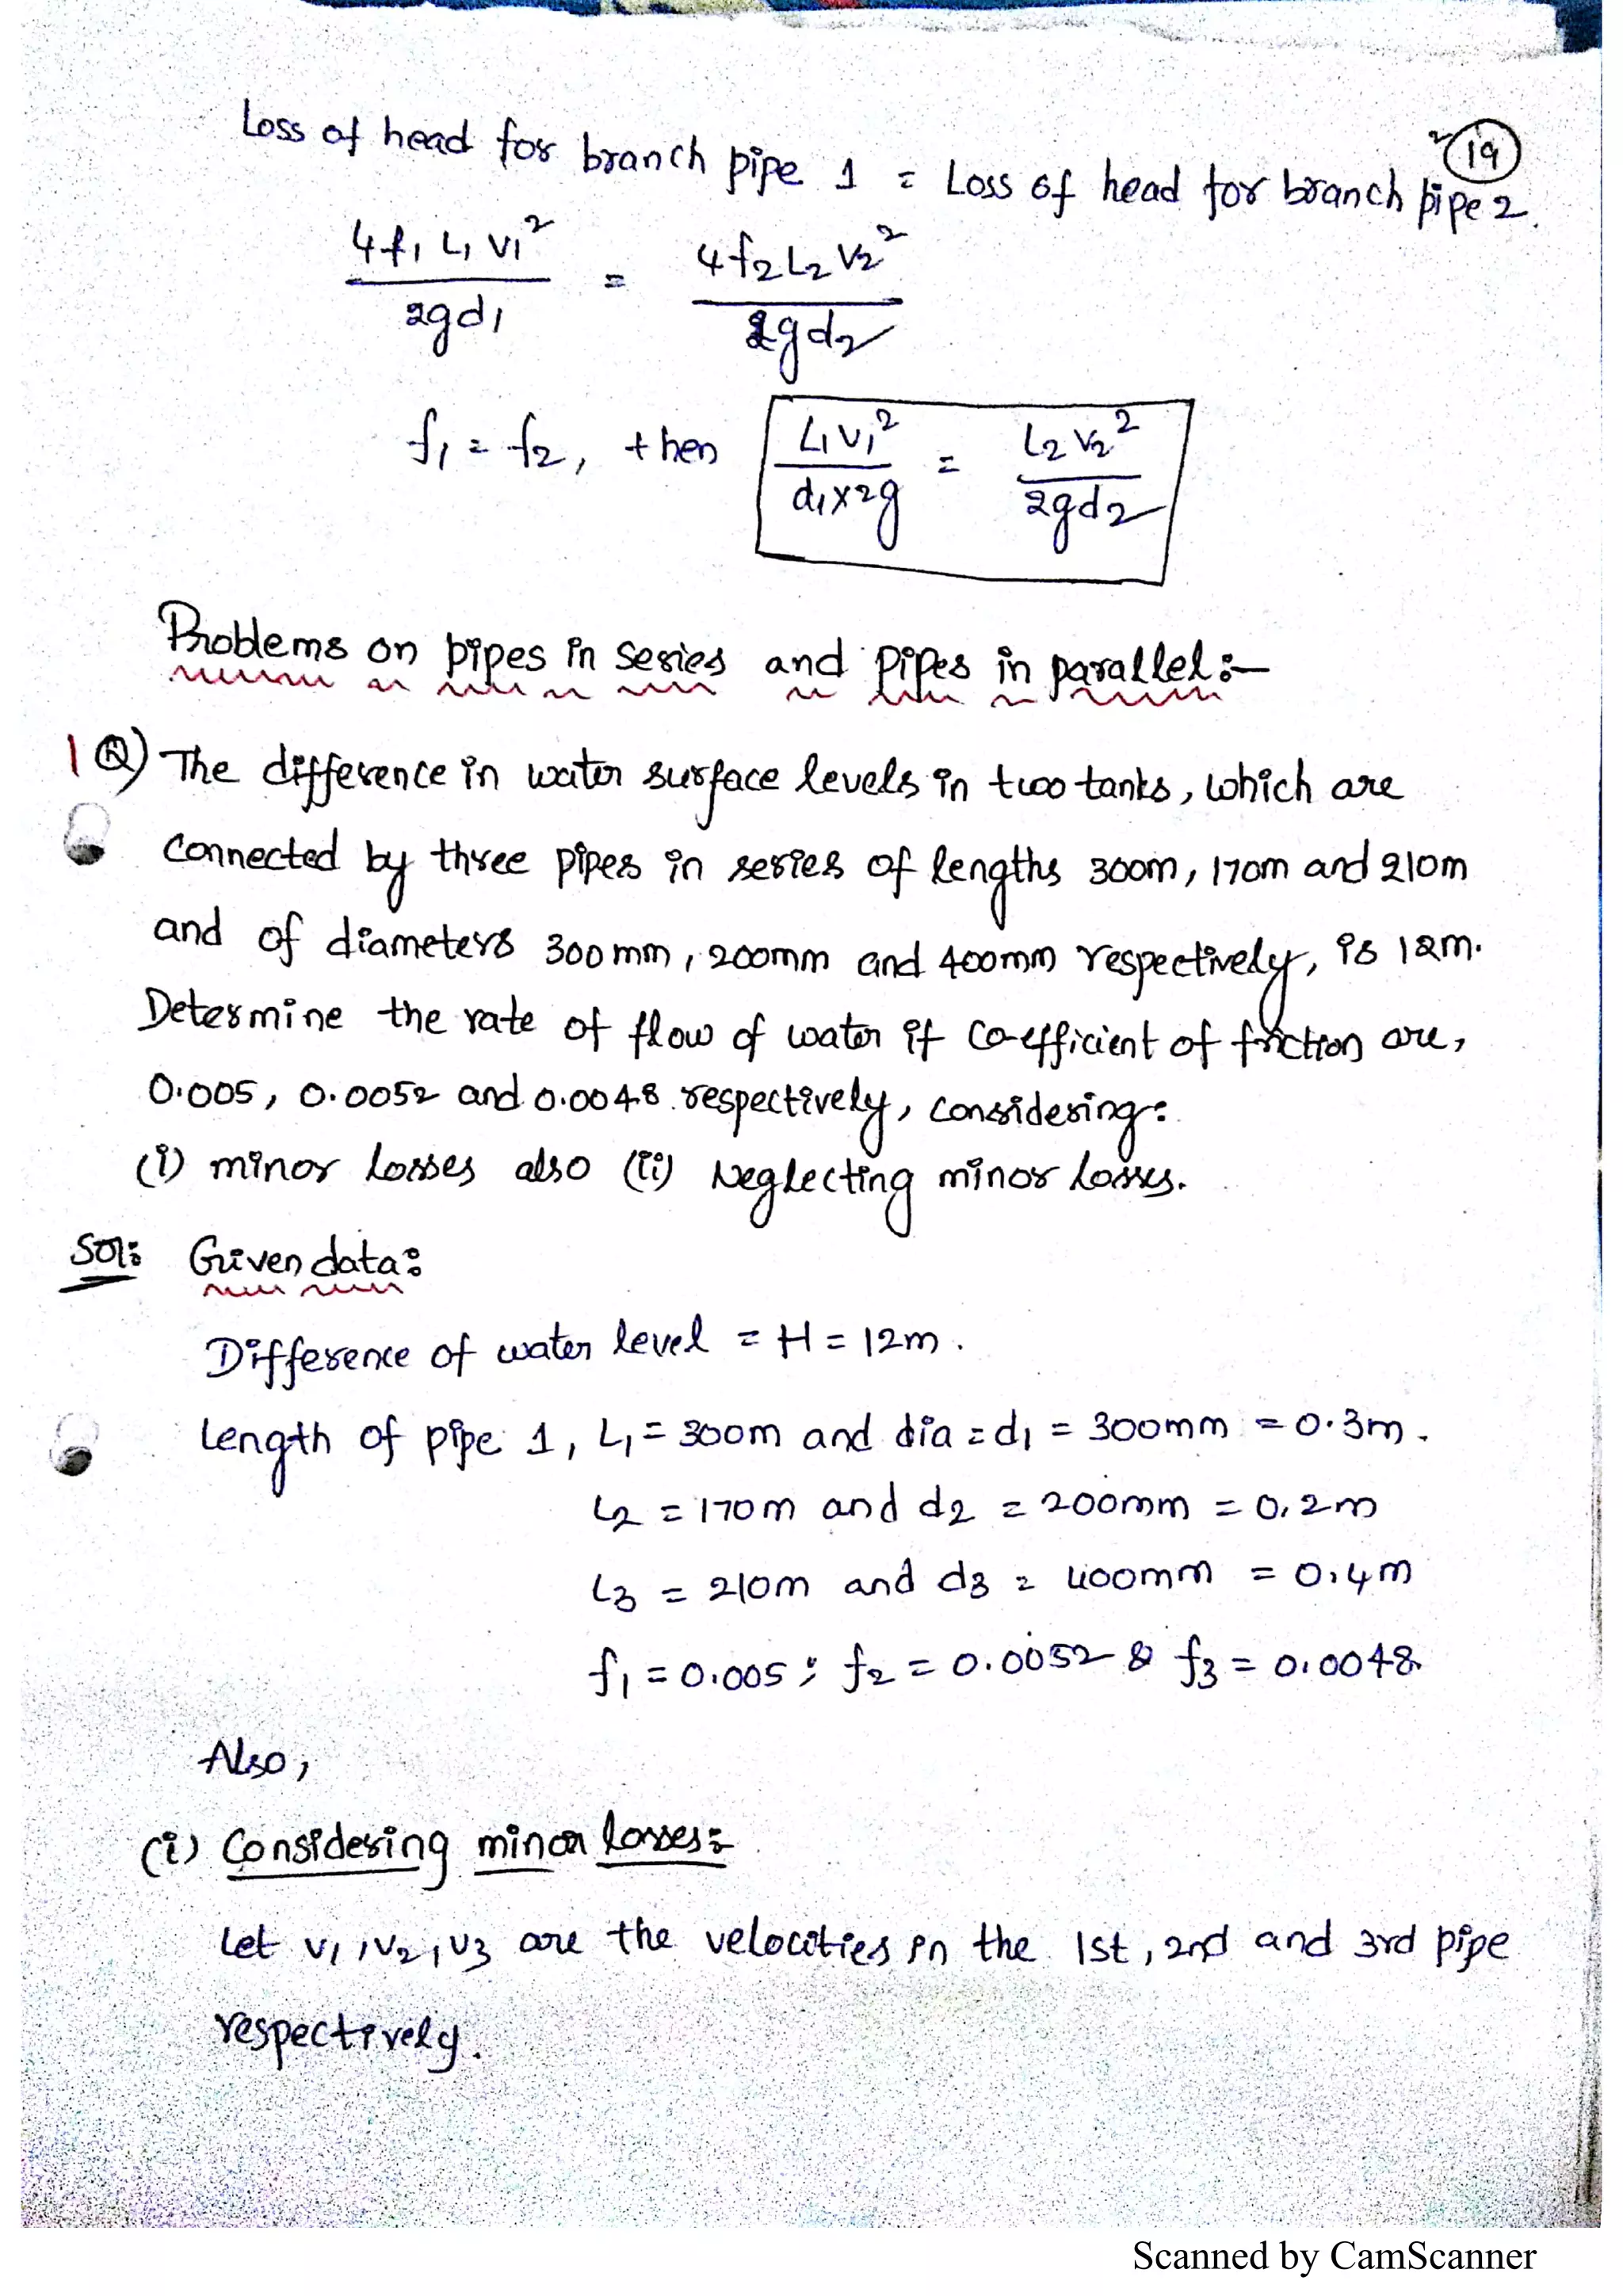 19
Loss of head for branch pipe 1 = Loss of head for branch pipe 2.
4f₁ L₁ V₁² / 2gd₁ = 4f₂ L₂ V₂² / 2gd₂
f₁ = f₂, then L₁V₁² / d₁×2g = L₂V₂² / 2gd₂
Problems on pipes in series and pipes in parallel :-
1 Q) The difference in water surface levels in two tanks, which are
connected by three pipes in series of lengths 300m, 170m and 210m
and of diameters 300mm, 200mm and 400mm respectively, is 12m.
Determine the rate of flow of water if co-efficient of friction are,
0.005, 0.0052 and 0.0048 respectively, considering:
(i) minor losses also (ii) Neglecting minor losses.
Sol: Given data:
Difference of water level = H = 12m.
Length of pipe 1, L₁ = 300m and dia = d₁ = 300mm = 0.3m.
L₂ = 170m and d₂ = 200mm = 0.2m
L₃ = 210m and d₃ = 400mm = 0.4m
f₁ = 0.005; f₂ = 0.0052 & f₃ = 0.0048
Also,
(i) Considering minor losses:
Let V₁, V₂, V₃ are the velocities in the 1st, 2nd and 3rd pipe
respectively.
Scanned by CamScanner